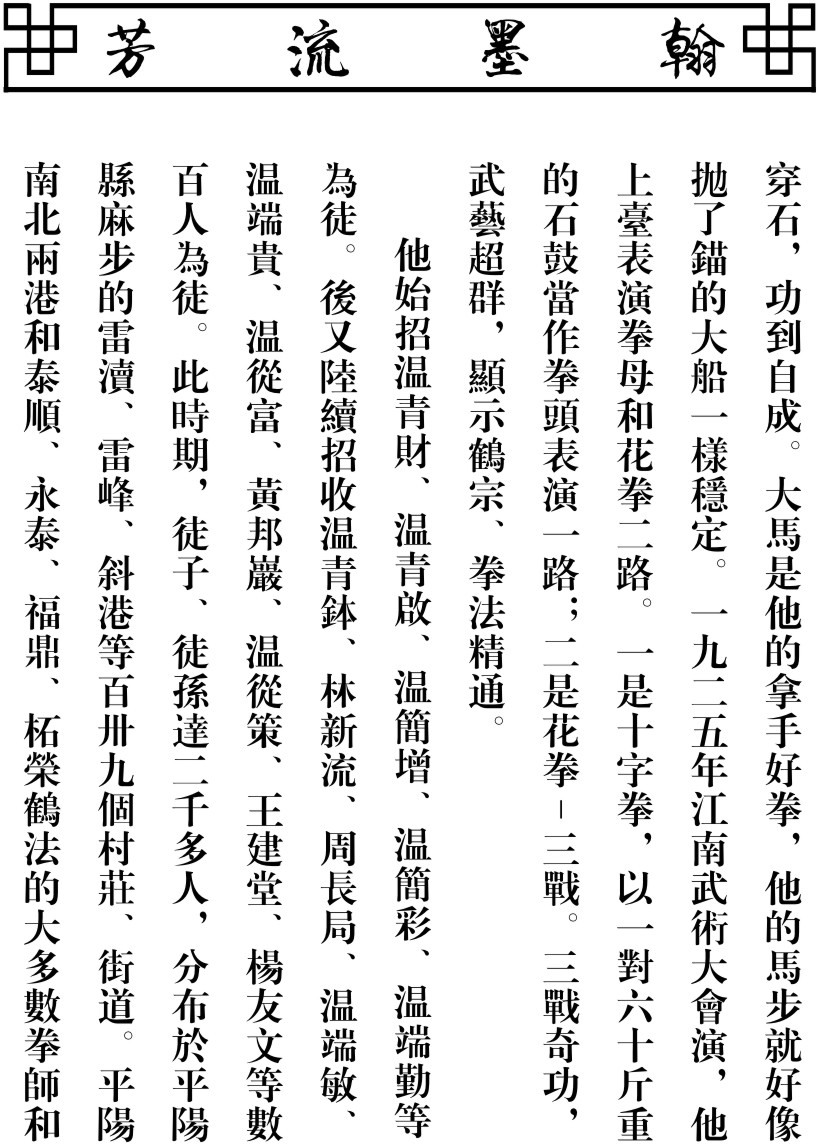 翰墨流芳
穿石，功到自成。大馬是他的拿手好拳，他的馬步就好像
抛了錨的大船一樣穩定。一九二五年江南武術大會演，他
上臺表演拳母和花拳二路。一是十字拳，以一對六十斤重
的石鼓當作拳頭表演一路；二是花拳–三戰。三戰奇功，
武藝超群，顯示鶴宗、拳法精通。
他始招温青財、温青啟、温簡增、温簡彩、温端勤等
為徒。後又陸續招收温青鉢、林新流、周長局、温端敏、
温端貴、温從富、黃邦巖、温從策、王建堂、楊友文等數
百人為徒。此時期，徒子、徒孫達二千多人，分布於平陽
縣麻步的雷瀆、雷峰、斜港等百卅九個村莊、街道。平陽
南北兩港和泰順、永泰、福鼎、柘榮鶴法的大多數拳師和